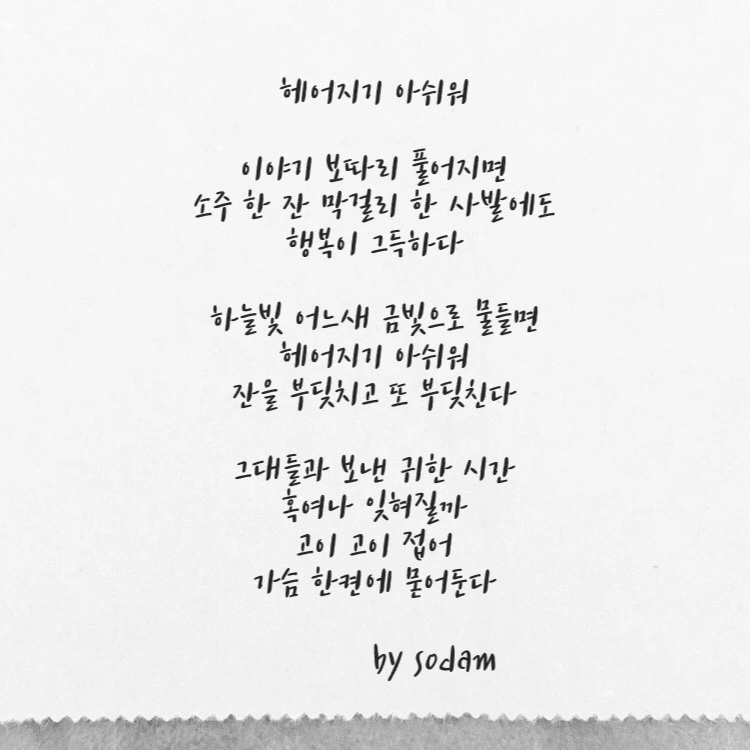 헤어지기 아쉬워
이야기 보따리 풀어지면
소주 한 잔 막걸리 한 사발에도
행복이 그득하다
하늘빛 어느새 금빛으로 물들면
헤어지기 아쉬워
잔을 부딪치고 또 부딪친다
그대들과 보낸 귀한 시간
혹여나 잊혀질까
고이 고이 접어
가슴 한켠에 묻어둔다
by sodam